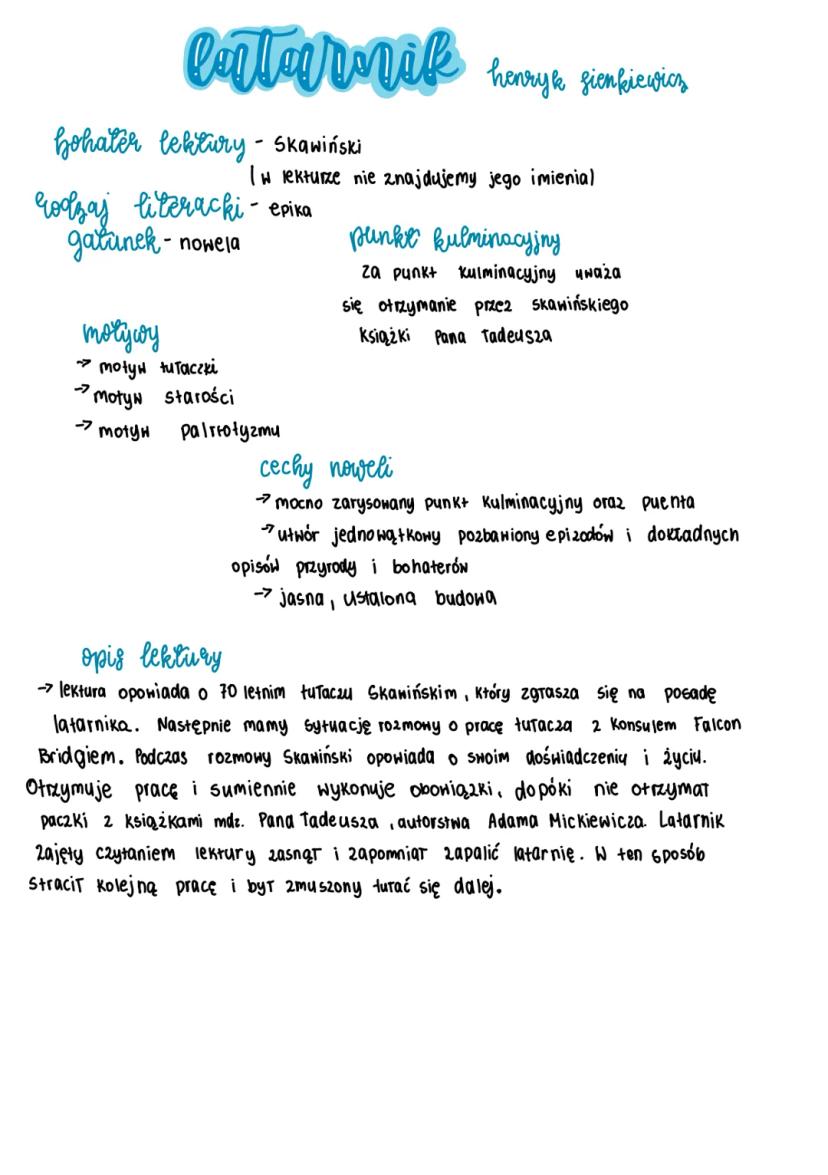 latarnik henryk sienkiewicz
bohater lektury - Skawiński
(w lekturze nie znajdujemy jego imienia)
rodzaj literacki - epika
gatunek - nowela
punkt kulminacyjny
za punkt kulminacyjny uważa
się otrzymanie przez skawińskiego
książki Pana Tadeusza
motywy
→ motyw tułaczki
→ motyw starości
→ motyw patriotyzmu
cechy noweli
→ mocno zarysowany punkt kulminacyjny oraz puenta
→ utwór jednowątkowy pozbawiony epizodów i dokładnych
opisów przyrody i bohaterów
→ jasna, ustalona budowa
opis lektury
→ lektura opowiada o 70 letnim tułaczu Skawińskim, który zgłasza się na posadę
latarnika. Następnie mamy sytuację rozmowy o pracę tułacza z konsulem Falcon
Bridgiem. Podczas rozmowy Skawiński opowiada o swoim doświadczeniu i życiu.
Otrzymuje pracę i sumiennie wykonuje obowiązki, dopóki nie otrzymał
paczki z książkami mdz. Pana Tadeusza, autorstwa Adama Mickiewicza. Latarnik
zajęty czytaniem lektury zasnął i zapomniał zapalić latarnię. W ten sposób
stracił kolejną pracę i był zmuszony tułać się dalej.